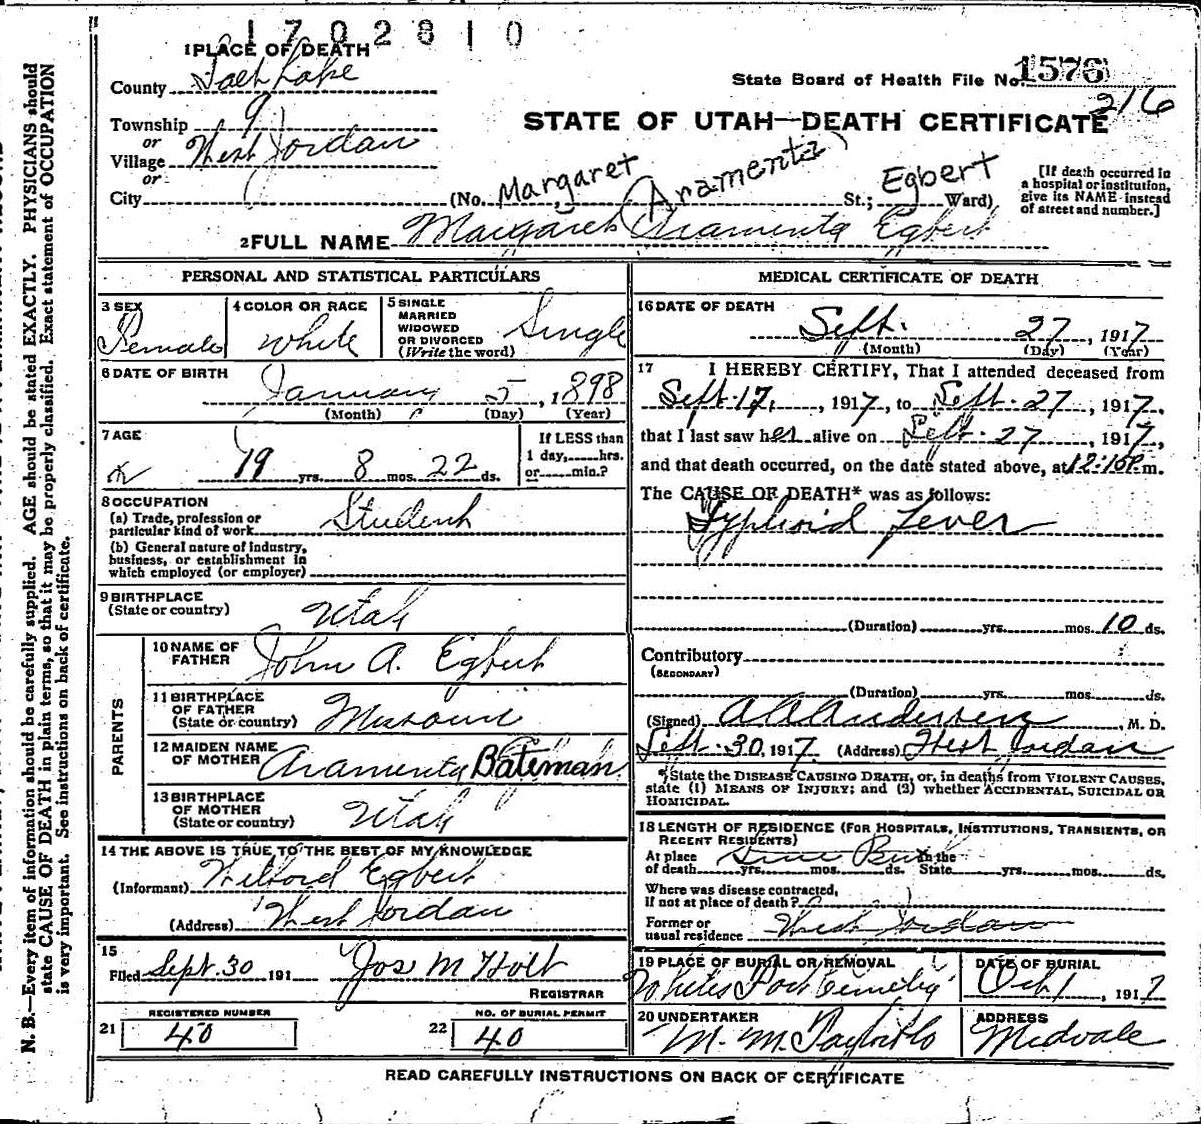 1702810
1 PLACE OF DEATH
County Salt Lake
State Board of Health File No. 1576
216
Township 9
STATE OF UTAH—DEATH CERTIFICATE
or
Village West Jordan
or
City
(No. Margaret (Aramenta) St.; Egbert Ward)
[If death occurred in
a hospital or institution,
give its NAME instead
of street and number.]
2 FULL NAME Margaret Aramenta Egbert
PERSONAL AND STATISTICAL PARTICULARS
3 SEX
Female
4 COLOR OR RACE
White
5 SINGLE
MARRIED
WIDOWED
OR DIVORCED
(Write the word)
Single
6 DATE OF BIRTH
January 5, 1898
(Month) (Day) (Year)
7 AGE
19 yrs. 8 mos. 22 ds.
If LESS than
1 day,......hrs.
or......min.?
8 OCCUPATION
(a) Trade, profession or
particular kind of work Student
(b) General nature of industry,
business, or establishment in
which employed (or employer)
9 BIRTHPLACE
(State or country) Utah
PARENTS
10 NAME OF
FATHER John A. Egbert
11 BIRTHPLACE
OF FATHER
(State or country) Missouri
12 MAIDEN NAME
OF MOTHER Aramenta Bateman
13 BIRTHPLACE
OF MOTHER
(State or country) Utah
14 THE ABOVE IS TRUE TO THE BEST OF MY KNOWLEDGE
(Informant) Wilford Egbert
(Address) West Jordan
15
Filed Sept. 30 191 Jos M Holt
REGISTRAR
REGISTERED NUMBER
21 40
NO. OF BURIAL PERMIT
22 40
MEDICAL CERTIFICATE OF DEATH
16 DATE OF DEATH
Sept. 27, 1917
(Month) (Day) (Year)
17 I HEREBY CERTIFY, That I attended deceased from
Sept. 17, 1917, to Sept. 27, 1917,
that I last saw her alive on Sept. 27, 1917,
and that death occurred, on the date stated above, at 12:10P.m.
The CAUSE OF DEATH* was as follows:
Typhoid Fever
(Duration) yrs. mos. 10 ds.
Contributory
(SECONDARY)
(Duration) yrs. mos. ds.
(Signed) , M. D.
Sept. 30, 1917 (Address) West Jordan
*State the DISEASE CAUSING DEATH, or, in deaths from VIOLENT CAUSES,
state (1) MEANS OF INJURY; and (2) whether ACCIDENTAL, SUICIDAL OR
HOMICIDAL.
18 LENGTH OF RESIDENCE (FOR HOSPITALS, INSTITUTIONS, TRANSIENTS, OR
RECENT RESIDENTS)
At place
of death Since Birth yrs. mos. ds. In the State yrs. mos. ds.
Where was disease contracted,
if not at place of death?
Former or
usual residence West Jordan
19 PLACE OF BURIAL OR REMOVAL
DATE OF BURIAL
Oct 1, 1917
20 UNDERTAKER
M. M. Taylor
ADDRESS
Midvale
READ CAREFULLY INSTRUCTIONS ON BACK OF CERTIFICATE
N. B.—Every item of information should be carefully supplied. AGE should be stated EXACTLY. PHYSICIANS should
state CAUSE OF DEATH in plain terms, so that it may be properly classified. Exact statement of OCCUPATION
is very important. See instructions on back of certificate.